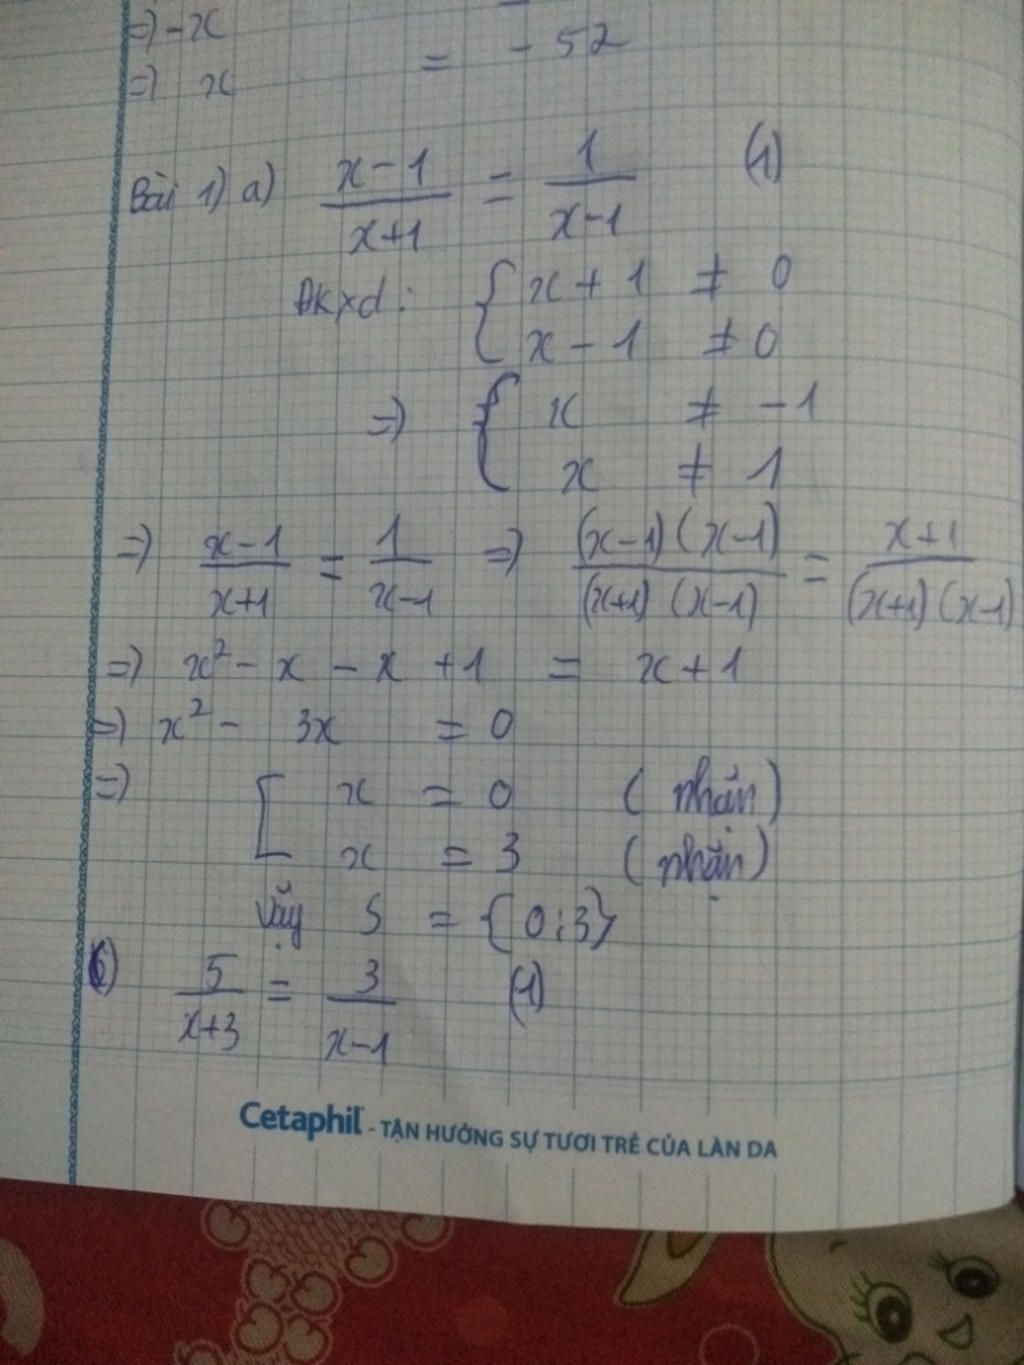 => -x
=> x = - 52
Bài 1) a) (x-1)/(x+1) = 1/(x-1) (1)
ĐKxđ: { x + 1 ≠ 0
x - 1 ≠ 0
=> { x ≠ -1
x ≠ 1
=> (x-1)/(x+1) = 1/(x-1) => (x-1)(x-1)/(x+1)(x-1) = (x+1)/(x+1)(x-1)
=> x² - x - x + 1 = x + 1
=> x² - 3x = 0
=> [ x = 0 (nhận)
x = 3 (nhận)
Vậy S = {0;3}
5/(x+3) = 3/(x-1) (1)
Cetaphil - TẬN HƯỞNG SỰ TƯƠI TRẺ CỦA LÀN DA